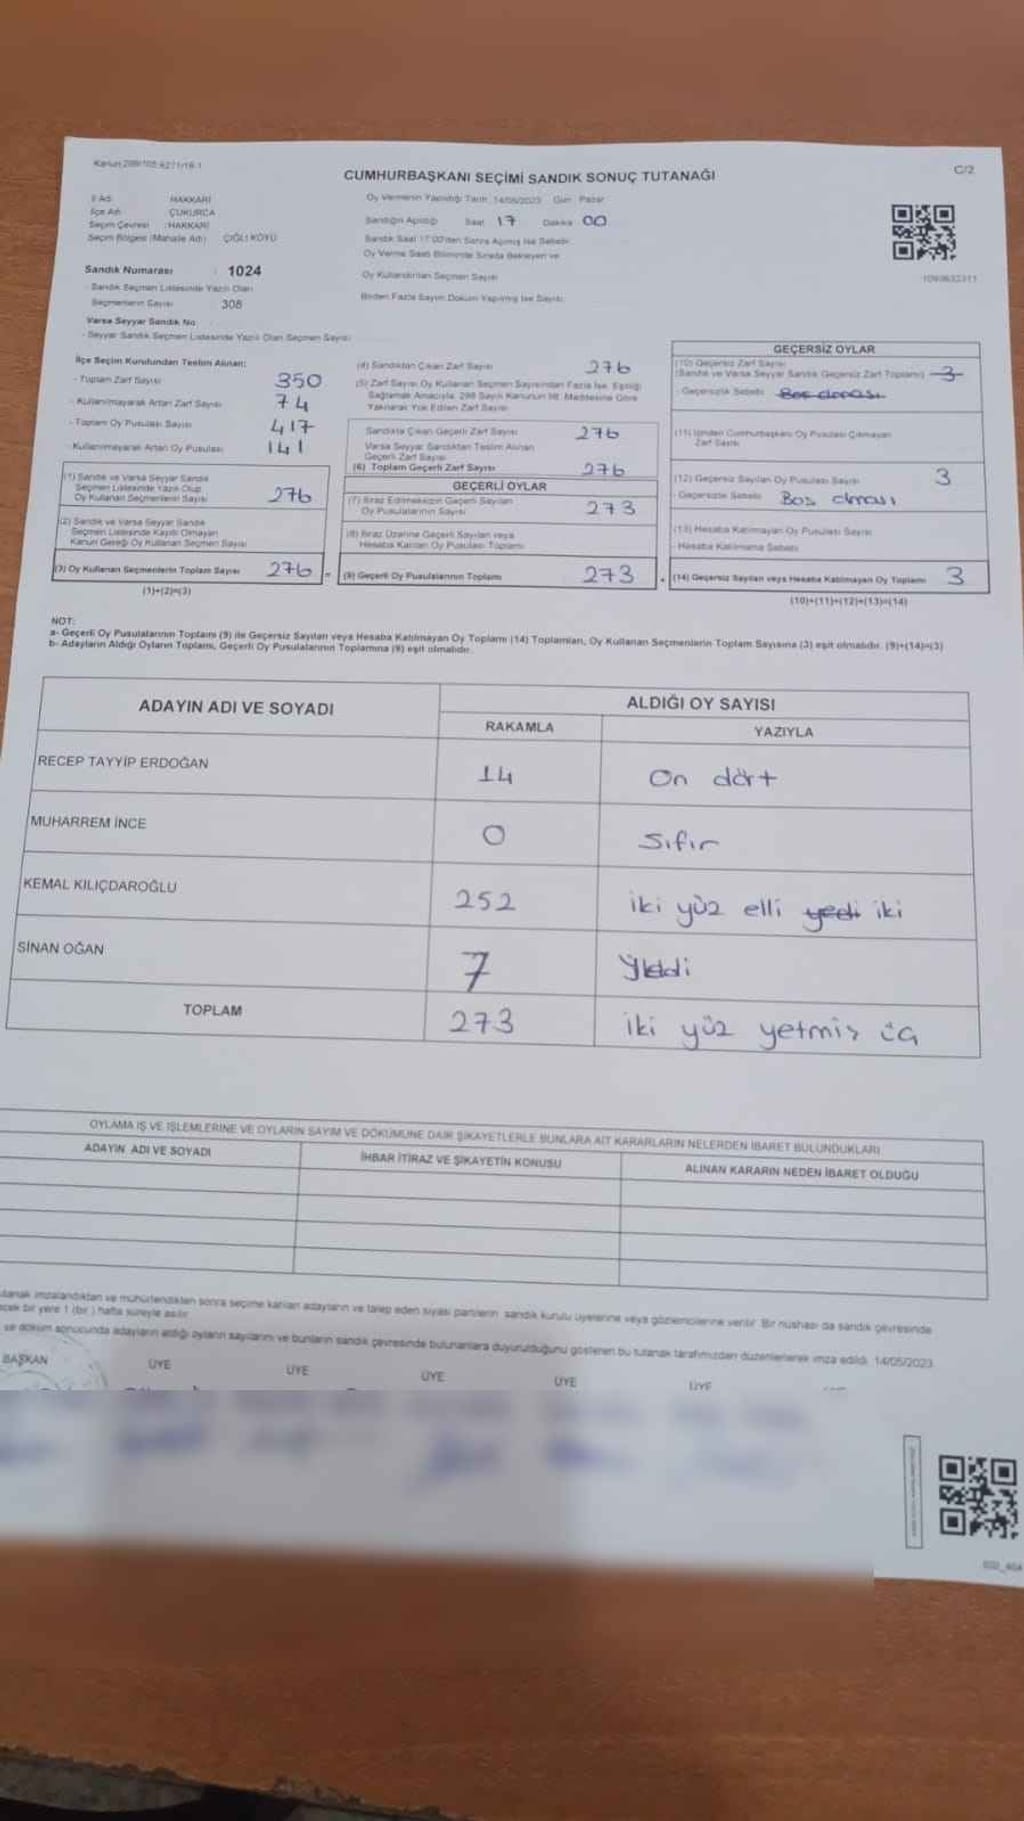 Kanun:298/105,6271/18-1
C/2
CUMHURBAŞKANI SEÇİMİ SANDIK SONUÇ TUTANAĞI
İl Adı HAKKARİ
İlçe Adı ÇUKURCA
Seçim Çevresi :HAKKARİ
Seçim Bölgesi (Mahalle Adı) ÇIĞLI KÖYÜ
Oy Vermenin Yapıldığı Tarih 14/05/2023 Gün Pazar
Sandığın Açıldığı Saat 17 Dakika 00
Sandık Saat 17:00'den Sonra Açılmış İse Sebebi
Oy Verme Saati Bitiminde Sırada Bekleyen ve
Oy Kullandırılan Seçmen Sayısı
Birden Fazla Sayım Döküm Yapılmış İse Sayısı
Sandık Numarası : 1024
- Sandık Seçmen Listesinde Yazılı Olan
Seçmenlerin Sayısı 308
Varsa Seyyar Sandık No
- Seyyar Sandık Seçmen Listesinde Yazılı Olan Seçmen Sayısı
İlçe Seçim Kurulundan Teslim Alınan:
- Toplam Zarf Sayısı 350
- Kullanılmayarak Artan Zarf Sayısı 74
- Toplam Oy Pusulası Sayısı 417
- Kullanılmayarak Artan Oy Pusulası 141
(1) Sandık ve Varsa Seyyar Sandık
Seçmen Listesinde Yazılı Olup
Oy Kullanan Seçmenlerin Sayısı 276
(2) Sandık ve Varsa Seyyar Sandık
Seçmen Listesinde Kayıtlı Olmayan
Kanun Gereği Oy Kullanan Seçmen Sayısı
(3) Oy Kullanan Seçmenlerin Toplam Sayısı 276
(1)+(2)=(3)
(4) Sandıktan Çıkan Zarf Sayısı 276
(5) Zarf Sayısı Oy Kullanan Seçmen Sayısından Fazla İse, Eşitliği
Sağlamak Amacıyla, 298 Sayılı Kanunun 98. Maddesine Göre
Yakılarak Yok Edilen Zarf Sayısı
Sandıkta Çıkan Geçerli Zarf Sayısı 276
Varsa Seyyar Sandıktan Teslim Alınan
Geçerli Zarf Sayısı
(6) Toplam Geçerli Zarf Sayısı 276
GEÇERLİ OYLAR
(7) İtiraz Edilmeksizin Geçerli Sayılan
Oy Pusulalarının Sayısı 273
(8) İtiraz Üzerine Geçerli Sayılan veya
Hesaba Katılan Oy Pusulası Toplamı
(9) Geçerli Oy Pusulalarının Toplamı 273
GEÇERSİZ OYLAR
(10) Geçersiz Zarf Sayısı
(Sandık ve Varsa Seyyar Sandık Geçersiz Zarf Toplamı) 3
- Geçersizlik Sebebi Boş olması
(11) İçinden Cumhurbaşkanı Oy Pusulası Çıkmayan
Zarf Sayısı
(12) Geçersiz Sayılan Oy Pusulası Sayısı 3
- Geçersizlik Sebebi Boş olması
(13) Hesaba Katılmayan Oy Pusulası Sayısı
- Hesaba Katılmama Sebebi
(14) Geçersiz Sayılan veya Hesaba Katılmayan Oy Toplamı 3
(10)+(11)+(12)+(13)=(14)
NOT:
a- Geçerli Oy Pusulalarının Toplamı (9) ile Geçersiz Sayılan veya Hesaba Katılmayan Oy Toplamı (14) Toplamları, Oy Kullanan Seçmenlerin Toplam Sayısına (3) eşit olmalıdır. (9)+(14)=(3)
b- Adayların Aldığı Oyların Toplamı, Geçerli Oy Pusulalarının Toplamına (9) eşit olmalıdır.
ADAYIN ADI VE SOYADI
ALDIĞI OY SAYISI
RAKAMLA YAZIYLA
RECEP TAYYİP ERDOĞAN 14 On dört
MUHARREM İNCE 0 Sıfır
KEMAL KILIÇDAROĞLU 252 iki yüz elli yedi iki
SİNAN OĞAN 7 Yedi
TOPLAM 273 iki yüz yetmiş üç
OYLAMA İŞ VE İŞLEMLERİNE VE OYLARIN SAYIM VE DÖKÜMÜNE DAİR ŞİKAYETLERLE BUNLARA AİT KARARLARIN NELERDEN İBARET BULUNDUKLARI
ADAYIN ADI VE SOYADI İHBAR İTİRAZ VE ŞİKAYETİN KONUSU ALINAN KARARIN NEDEN İBARET OLDUĞU
imzalandıktan ve mühürlendikten sonra seçime katılan adayların ve talep eden siyasi partilerin sandık kurulu üyelerine veya gözlemcilerine verilir. Bir nüshası da sandık çevresinde
bir yere 1 (bir) hafta süreyle asılır.
ve döküm sonucunda adayların aldığı oyların sayılarını ve bunların sandık çevresinde bulunanlara duyurulduğunu gösteren bu tutanak tarafımızdan düzenlenerek imza edildi. 14/05/2023
BAŞKAN ÜYE ÜYE ÜYE ÜYE ÜYE